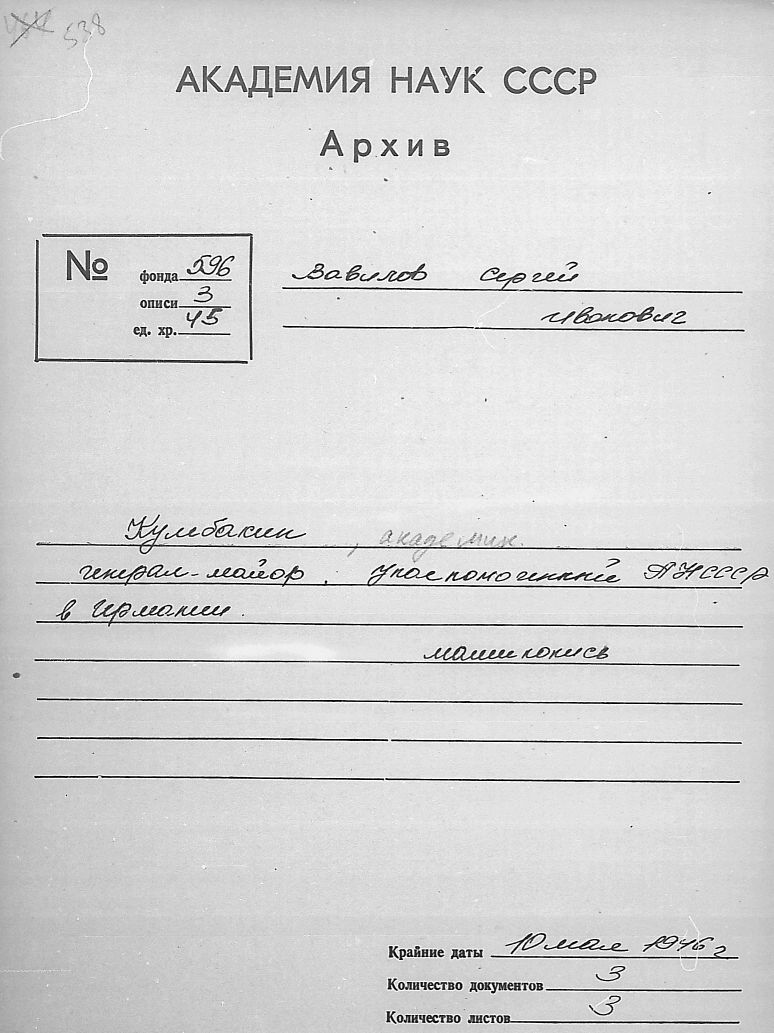 538
АКАДЕМИЯ НАУК СССР
Архив
№
фонда 596
описи 3
ед. хр. 45
Вавилов Сергей
Иванович
Кулебакин, академик.
генерал-майор, уполномоченный АН СССР
в Германии.
машинопись
Крайние даты 10 мая 1946 г
Количество документов 3
Количество листов 3